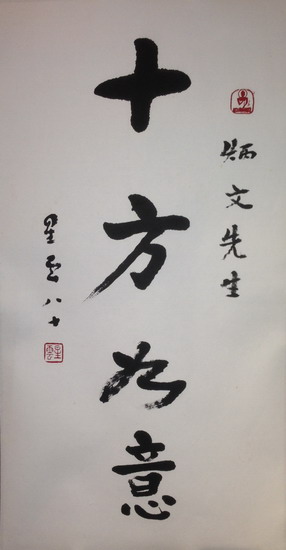 炳文先生
十方如意
星雲八十